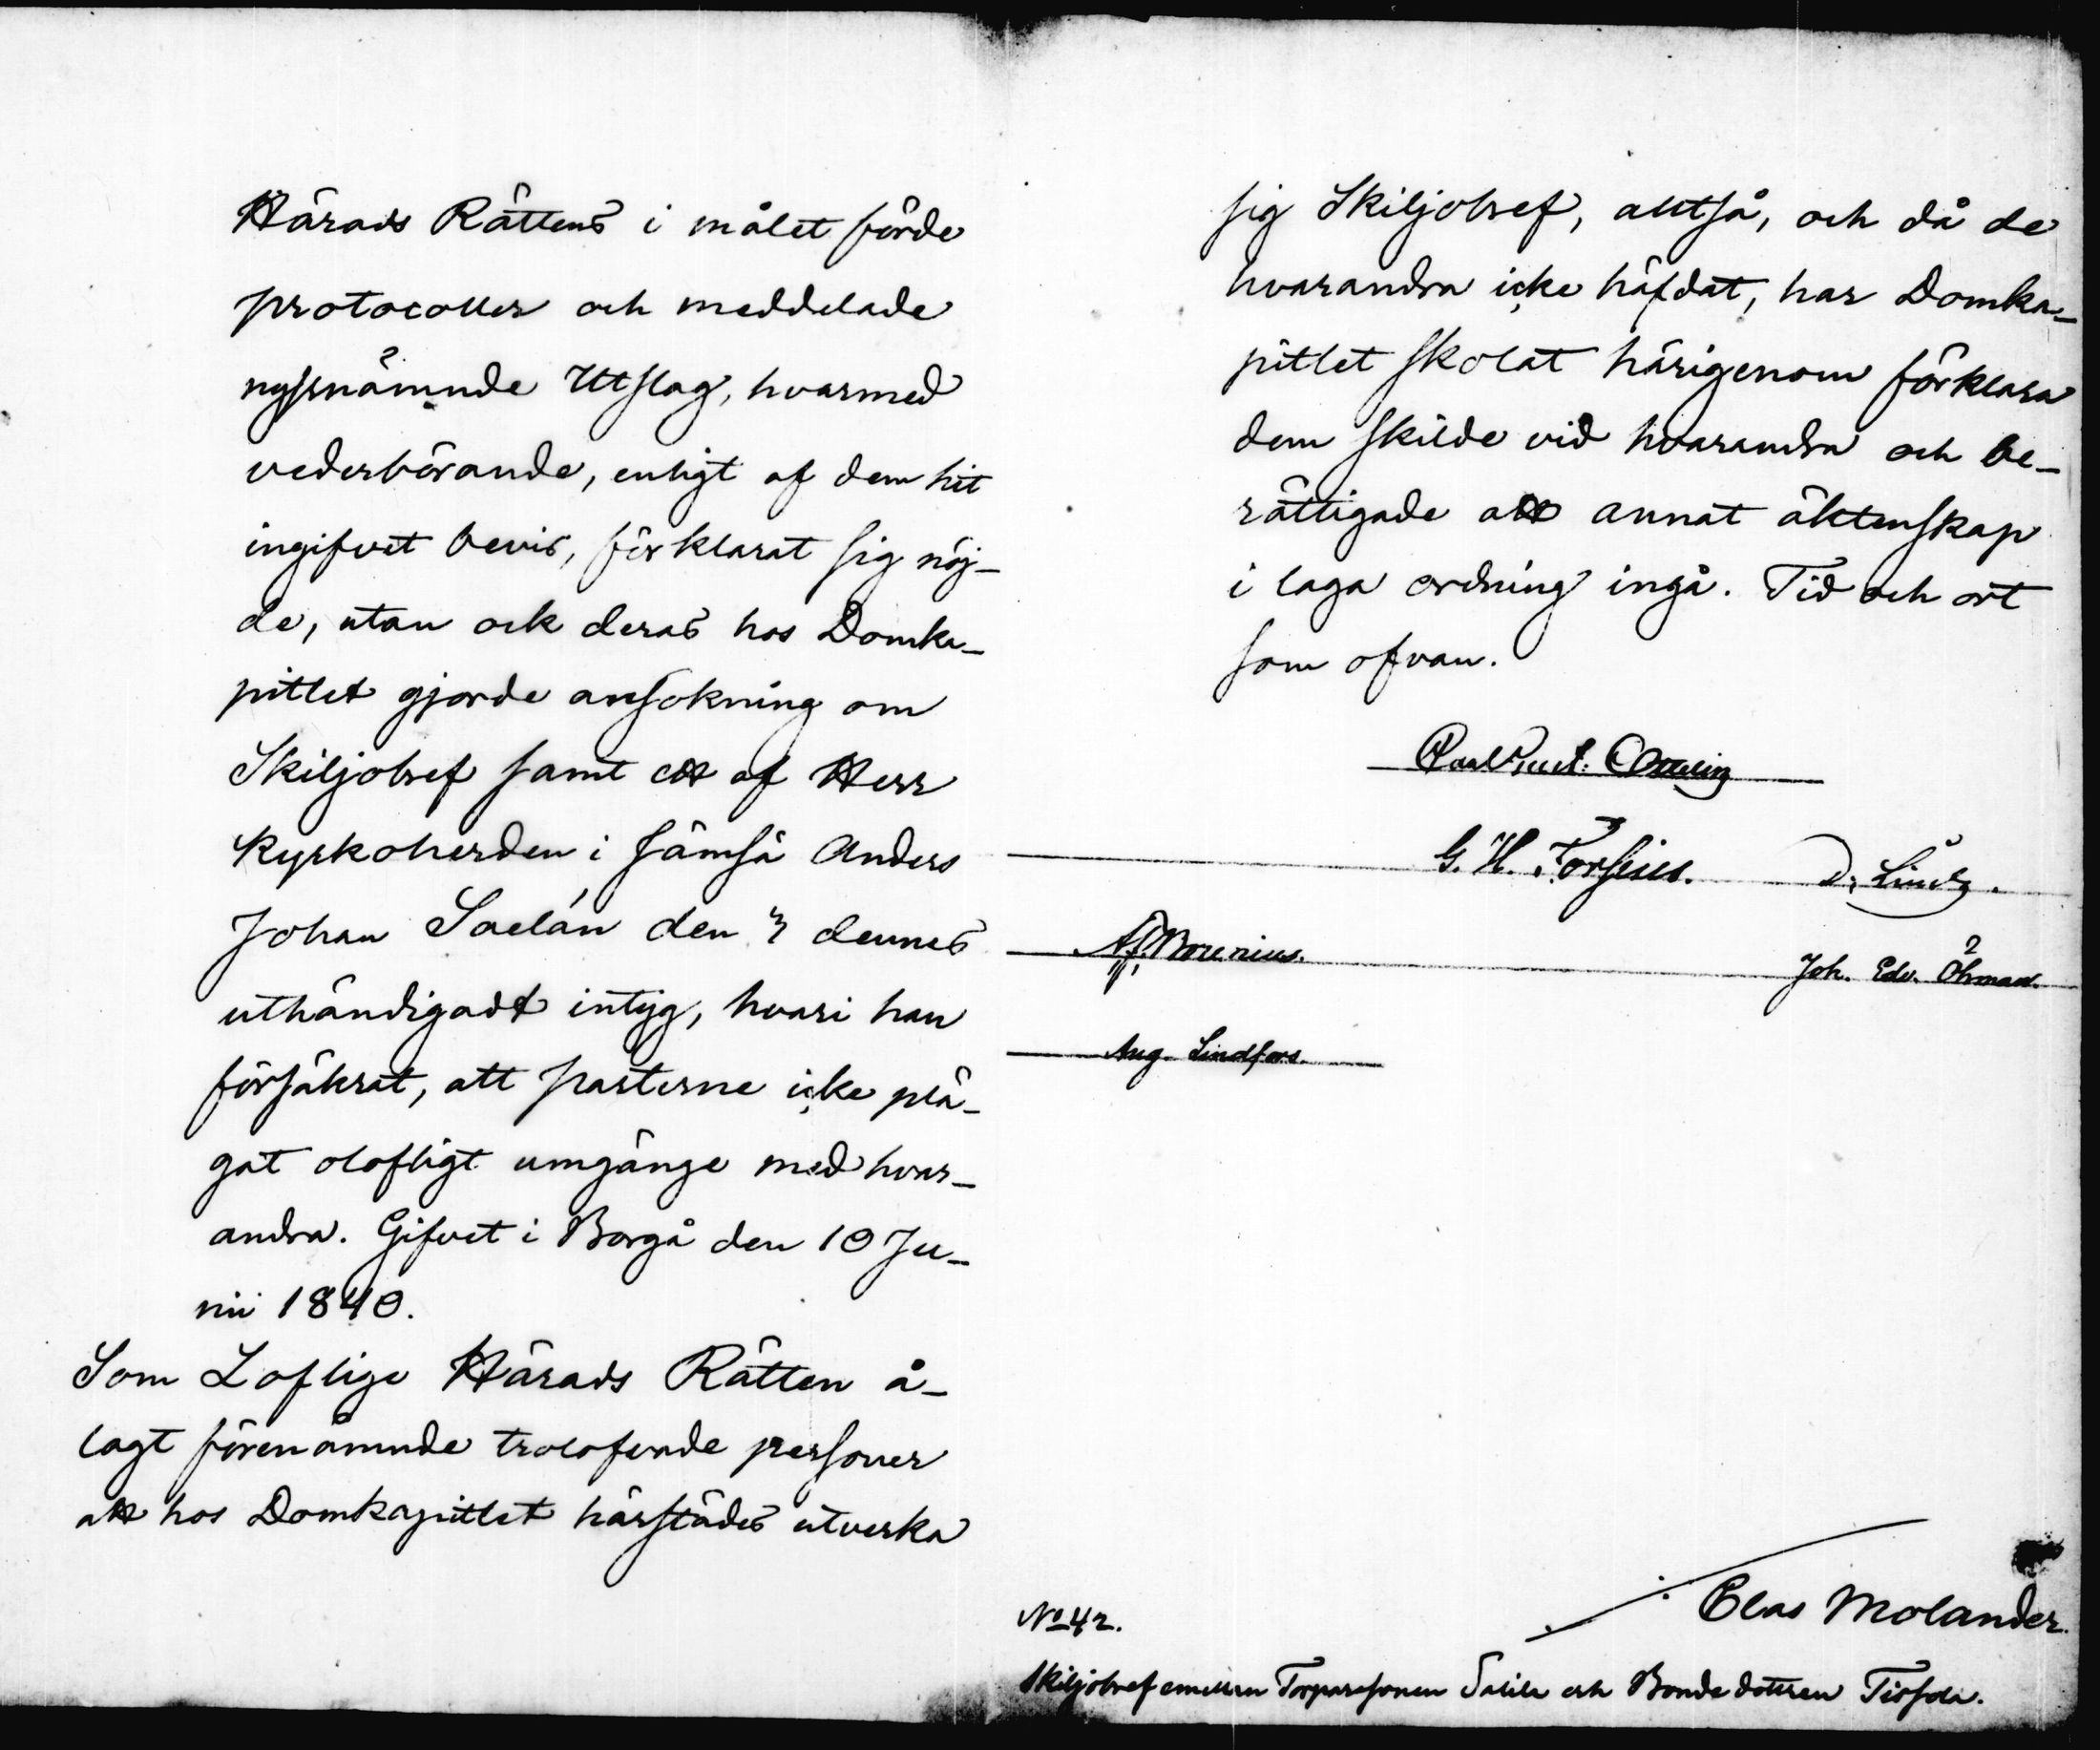 Härads Rättens i målet förde
protocoller och meddelade
nyssnämnde Utslag, hvarmed
vederbörande, enligt af dem hit
ingifvet bevis, förklarat sig nöj-
de, utan ock deras hos Domka-
pitlet gjorde ansökning om
Skiljobref samt ett af Herr
Kyrkoherden i Jämsä Anders
Johan Saelán den 3 dennes
uthändigadt intyg, hvari han
försäkrat, att parterne icke plä-
gat olofligt umgänge med hvar-
andra. Gifvet i Borgå den 10 Ju-
nii 1840.
Som Loflige Härads Rätten å-
lagt förenämnde trolofvade personer
att hos Domkapitlet härstädes utverka
sig Skiljobref, alltså, och då de
hvarandra icke häfdat, har Domka-
pitlet skolat härigenom förklara
dem skilde vid hvarandra och be-
rättigade att annat äktenskap
i laga ordning ingå. Tid och ort
som ofvan.
G. H. Forsius. D. Lindh.
A. J. Borenius. Joh. Edv. Öhman.
Aug. Lindfors.
Clas Molander.
No 42.
Skiljobref emellan Torparesonen och Bondedottren